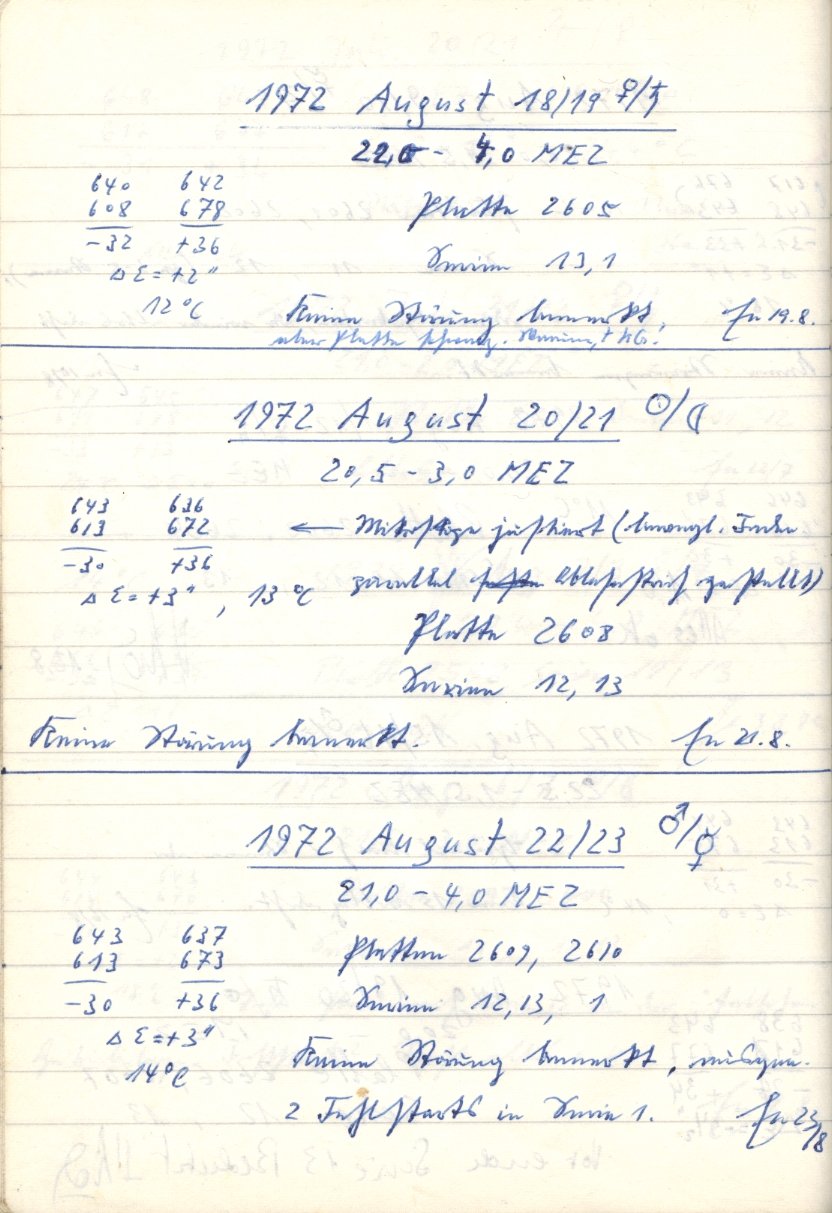 1972 August 18/19 ♀/♄
22,0 - 4,0 MEZ
640 642
608 678
-32 +36
Δ Σ = +2"
12°C
Platte 2605
Serien 13, 1
Keine Störung bemerkt,
19.8.
aber Platte
1972 August 20/21 ☉/☾
20,5 - 3,0 MEZ
643 636
613 672
-30 +36
Δ Σ = +3", 13°C
← Mikroskope justiert (bewegl. Faden
parallel Ablesestrich gestellt)
Platte 2608
Serien 12, 13
Keine Störung bemerkt. 21.8.
1972 August 22/23 ♂/☿
21,0 - 4,0 MEZ
643 637
613 673
-30 +36
Δ Σ = +3"
14°C
Platten 2609, 2610
Serien 12, 13, 1
Keine Störung bemerkt, ausgen.
2 Fehlstarts in Serie 1. 23/8